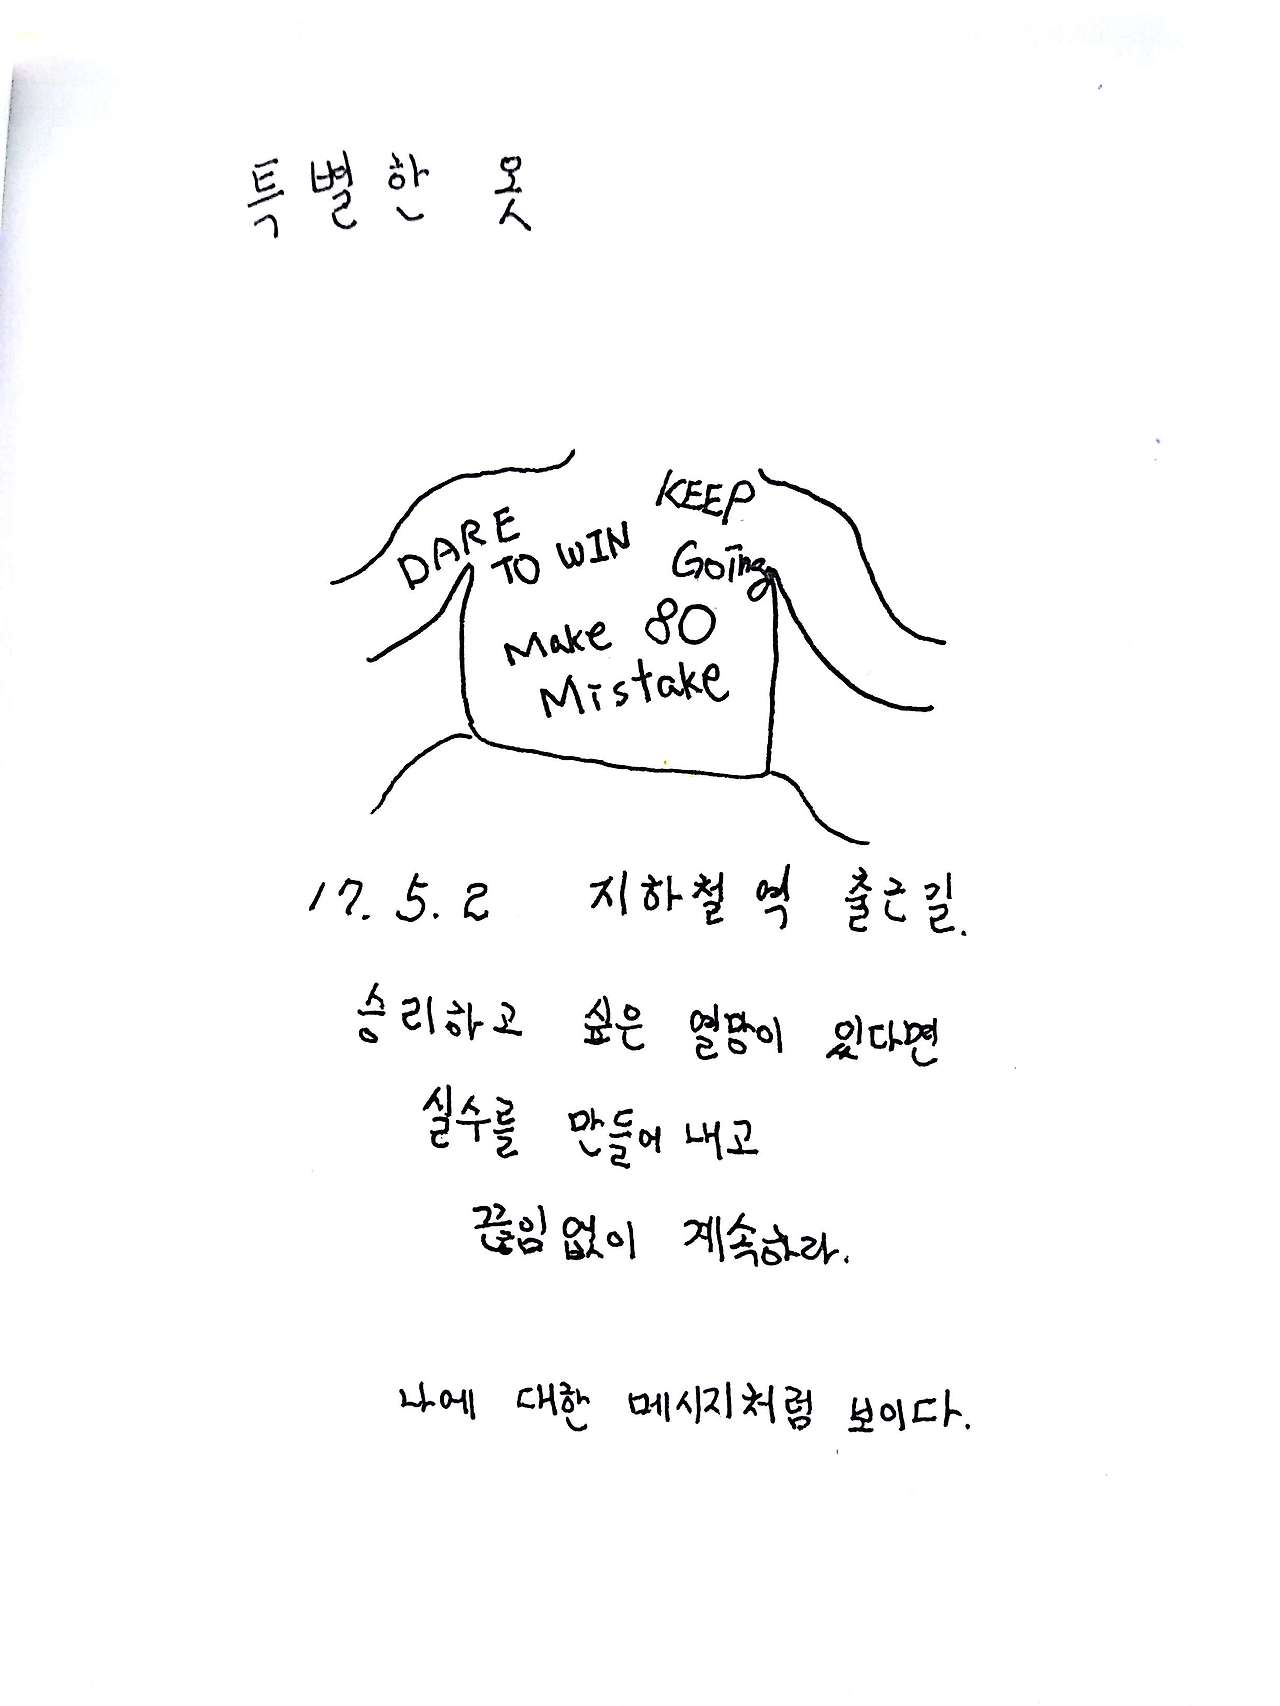 특별한 옷
DARE
TO WIN
KEEP
Going
Make 80
Mistake
17. 5. 2 지하철역 출근길.
승리하고 싶은 열망이 있다면
실수를 만들어 내고
끊임없이 계속하라.
나에 대한 메시지처럼 보이다.